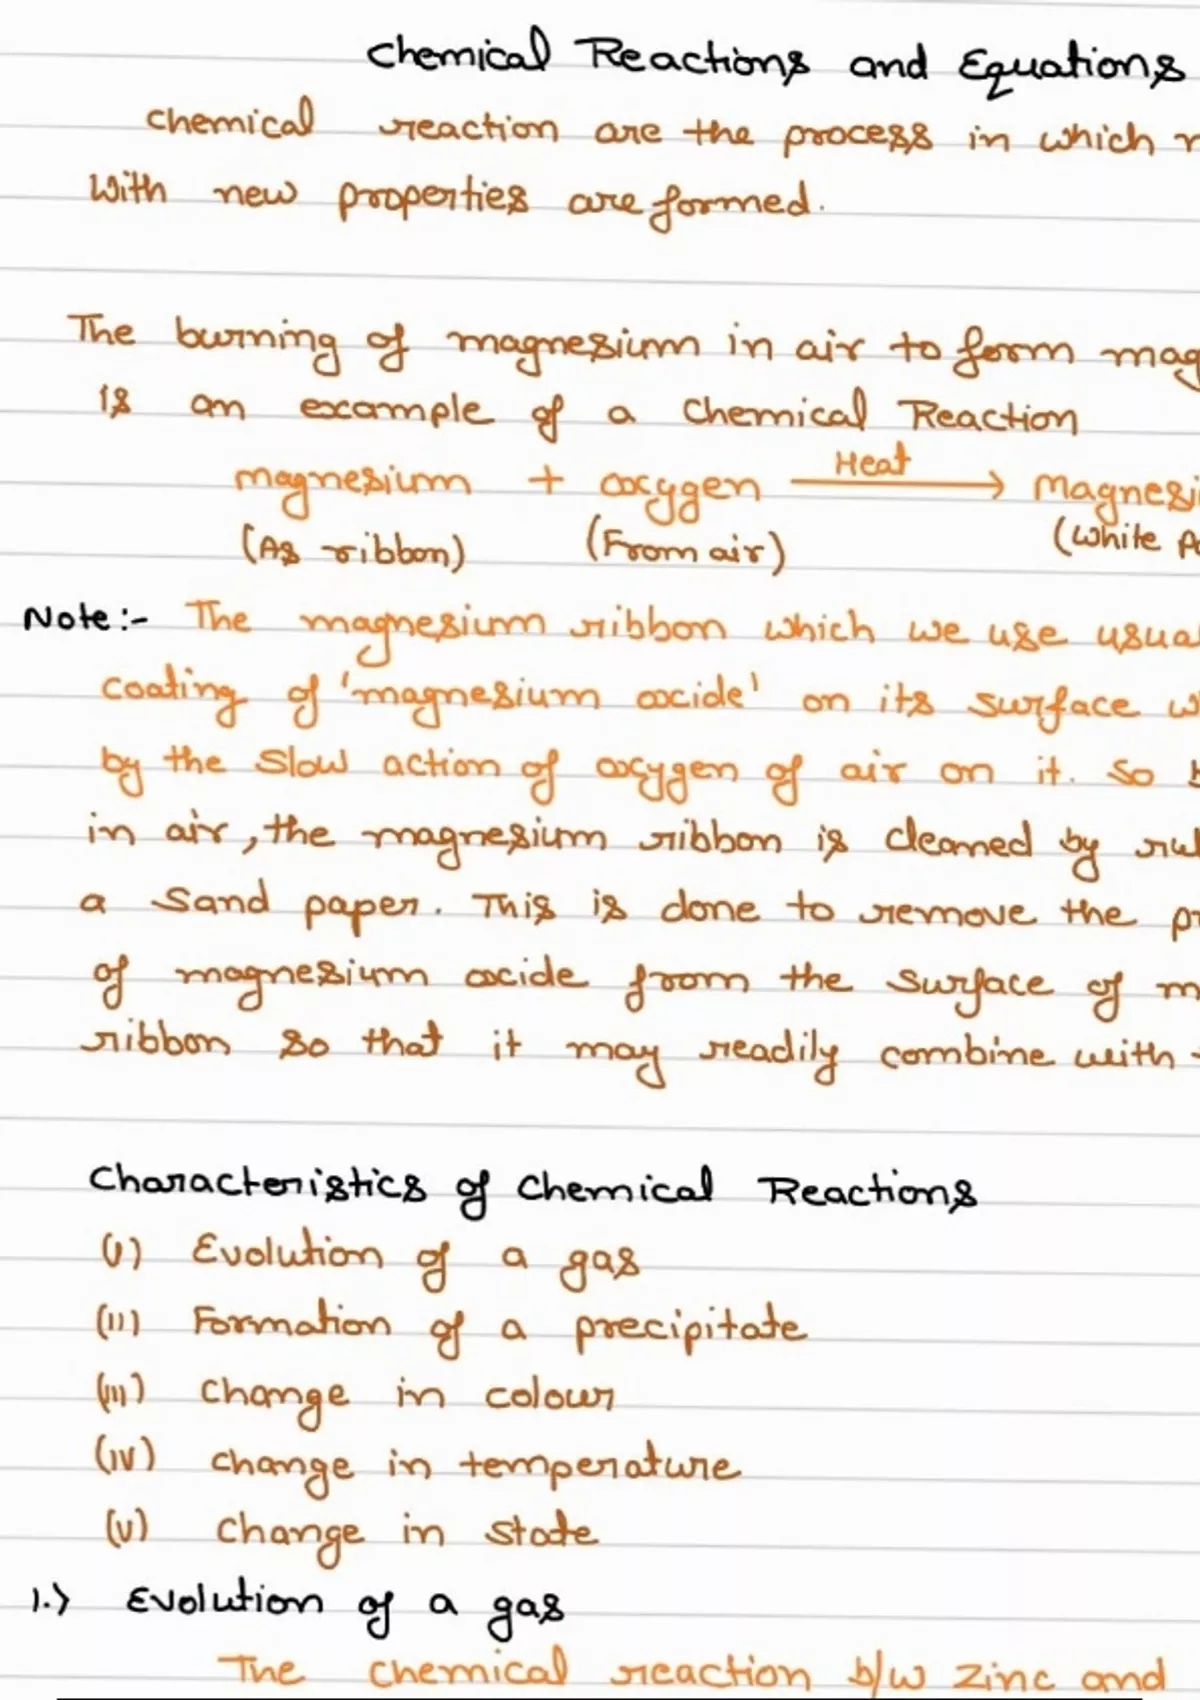 Chemical Reactions and Equations
Chemical reaction are the process in which
with new properties are formed.
The burning of magnesium in air to form mag
is an example of a Chemical Reaction
magnesium + oxygen Heat → Magnesi
(As ribbon) (From air) (White
Note:- The magnesium ribbon which we use usual
coating of 'magnesium oxide' on its surface w
by the slow action of oxygen of air on it. So
in air, the magnesium ribbon is cleaned by rub
a Sand paper. This is done to remove the pr
of magnesium oxide from the surface of m
ribbon so that it may readily combine with
Characteristics of Chemical Reactions
(i) Evolution of a gas
(ii) Formation of a precipitate
(iii) Change in colour
(iv) Change in temperature
(v) Change in state
1.) Evolution of a gas
The chemical reaction b/w zinc and